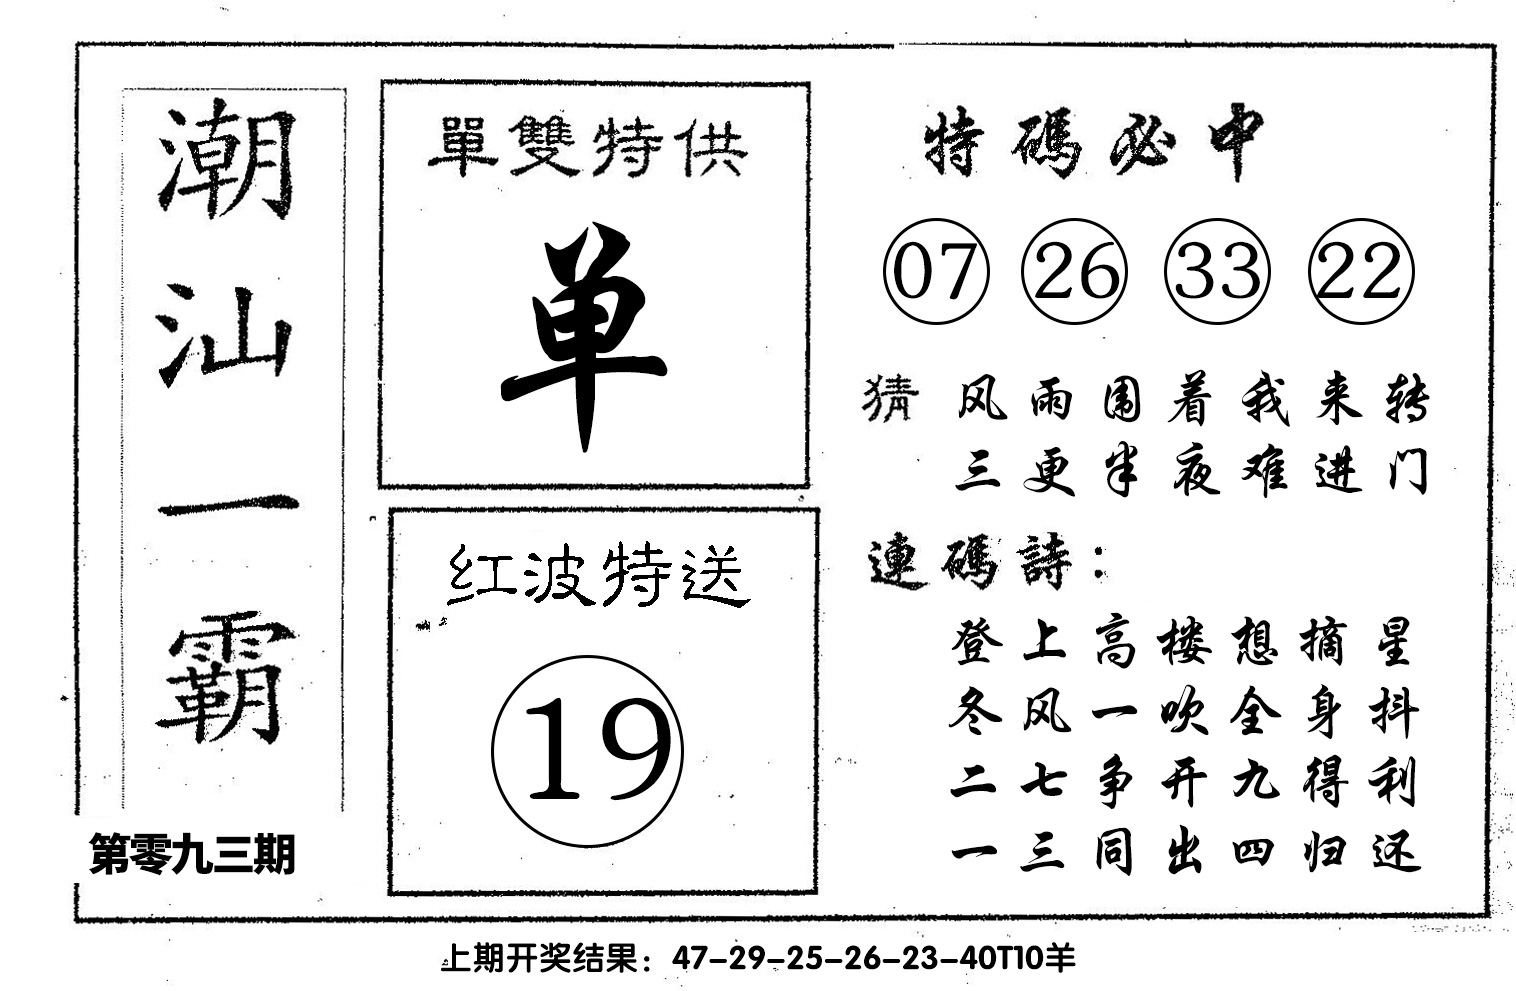 潮汕一霸
第零九三期
單雙特供
单
红波特送
19
特碼必中
07 26 33 22
猜 风雨围着我来转
三更半夜难进门
連碼詩：
登上高楼想摘星
冬风一吹全身抖
二七争开九得利
一三同出四归还
上期开奖结果：47-29-25-26-23-40T10羊